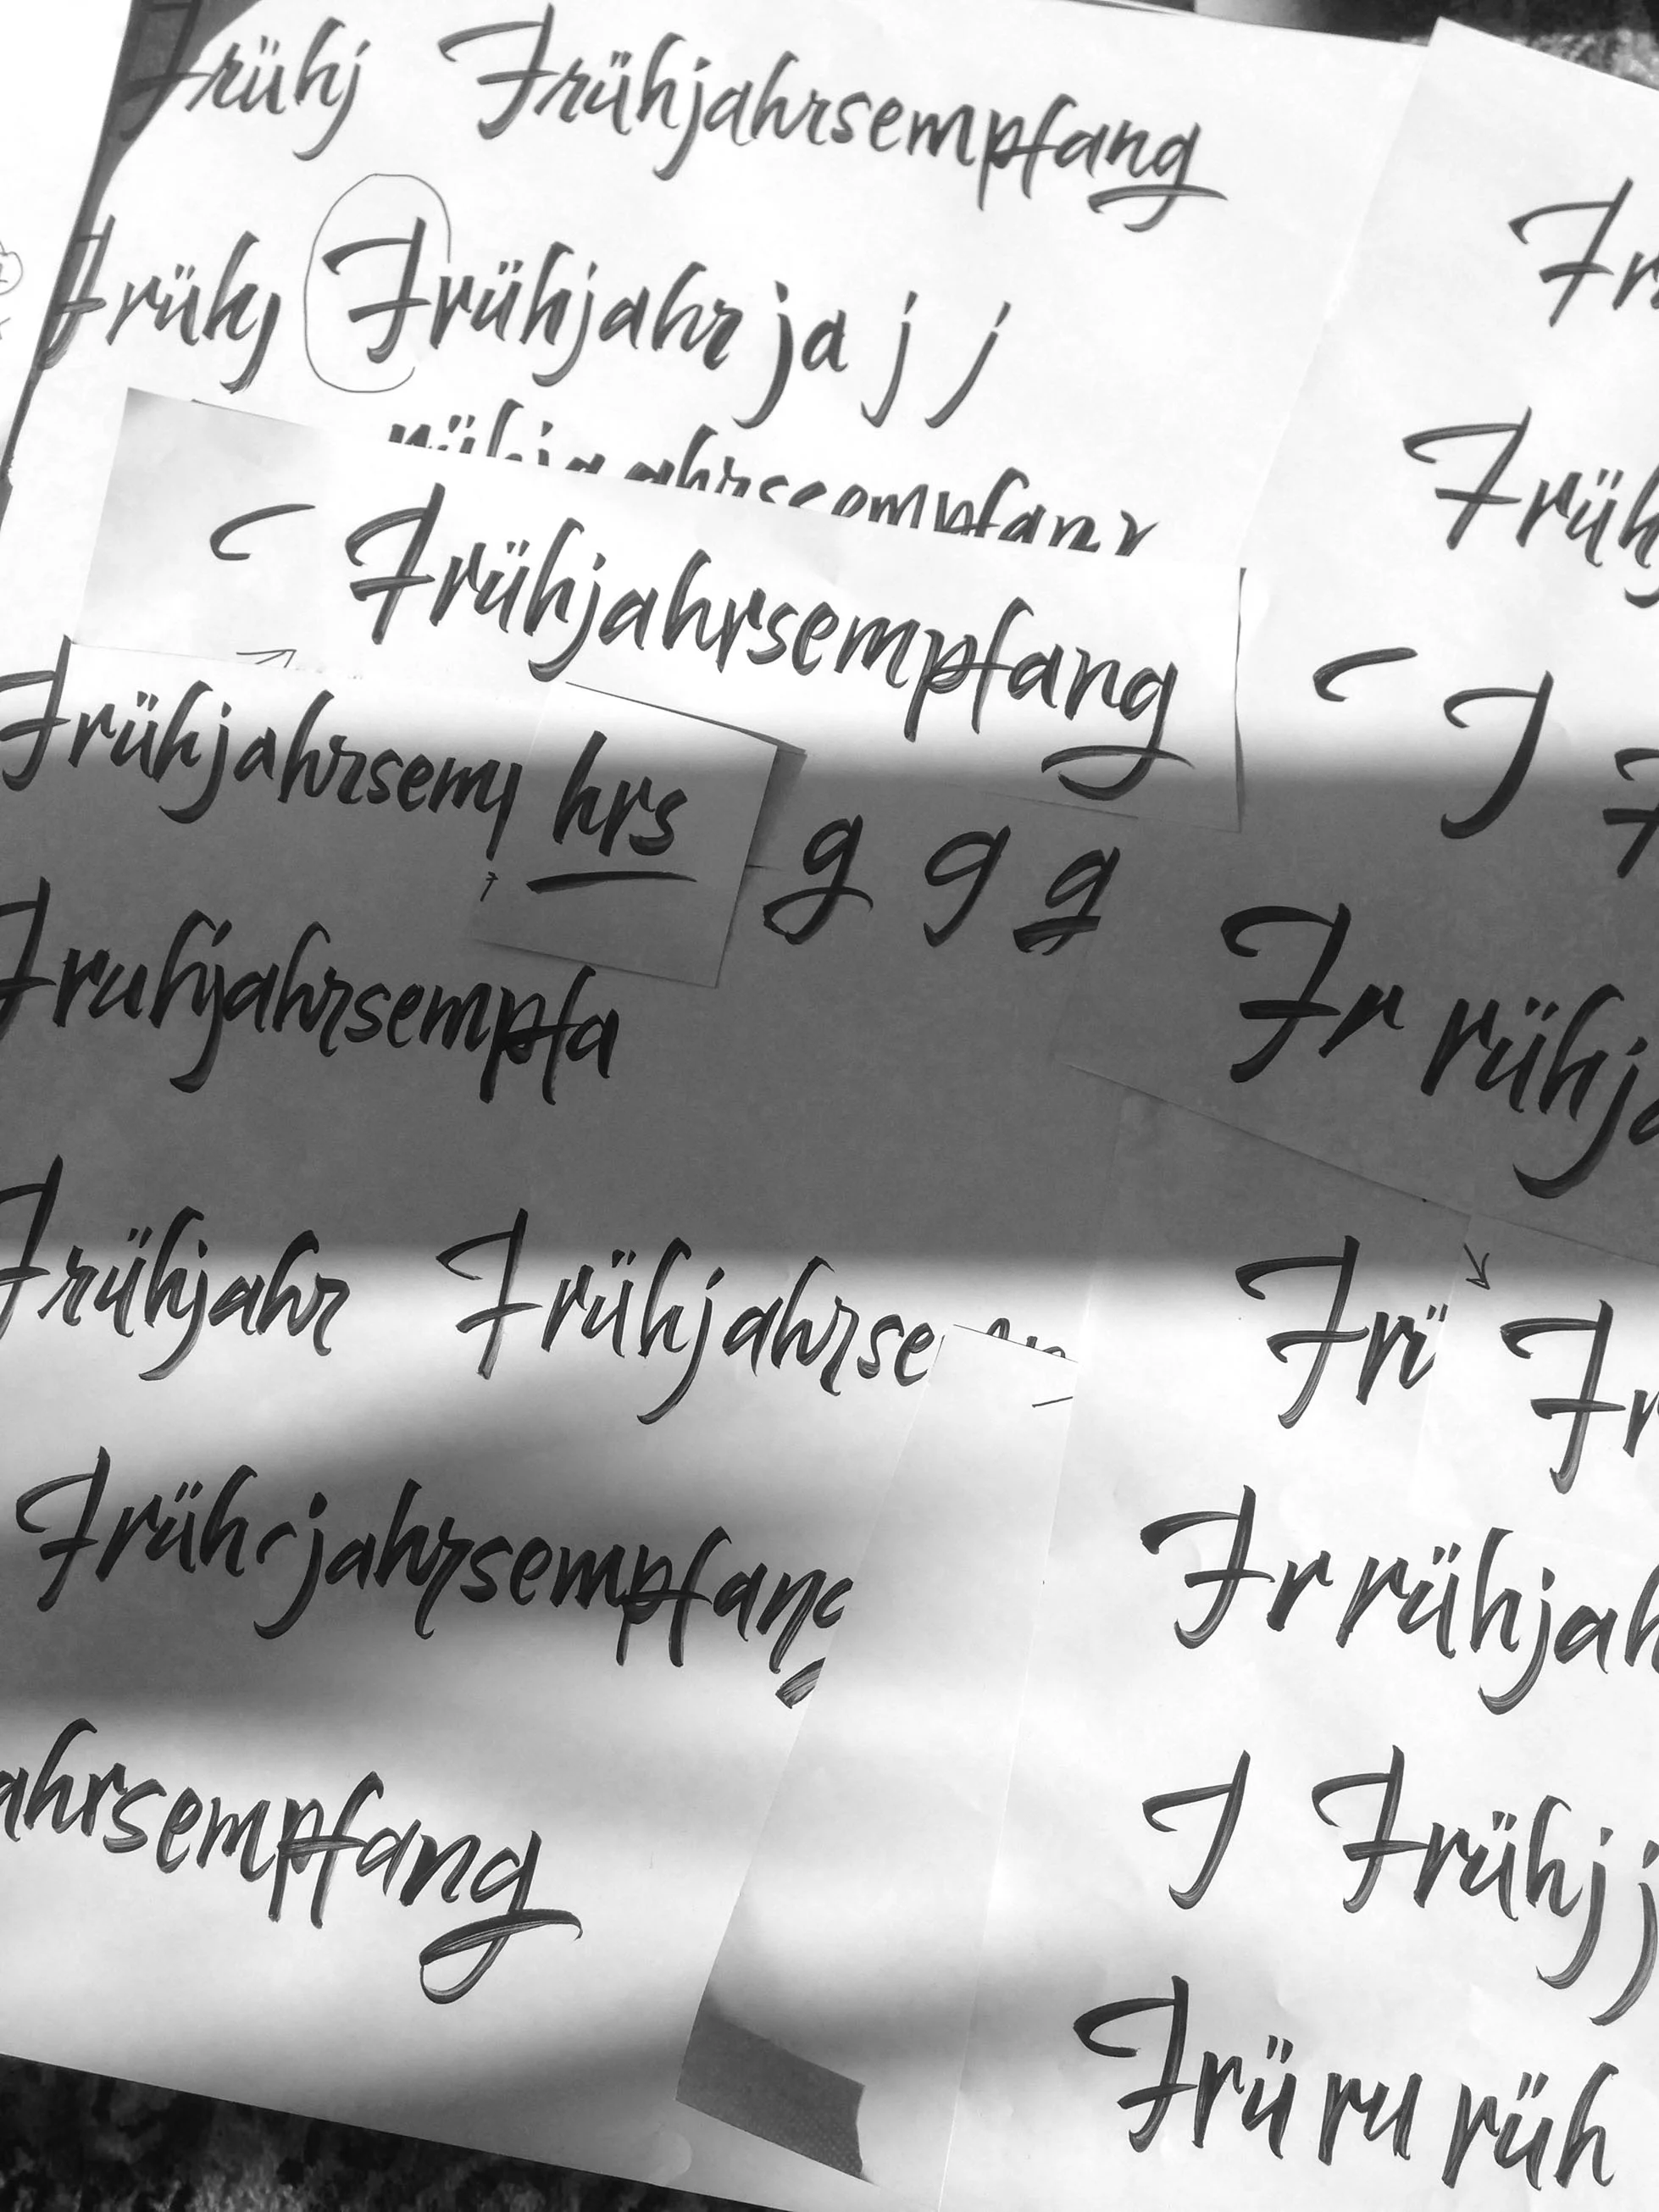 Frühj Frühjahrsempfang
Frühj Frühjahr ja j j
Frühjahrsempfang
Frühjahrsemp
hrs
g g g
Fruhjahrsempfa
Frühjahr Frühjahrse
Früh jahrsempfang
ahrsempfang
Fr
Früh
J
Fr rühja
Frü Fr
Fr rühjah
J Frühj j
Frü ru rüh